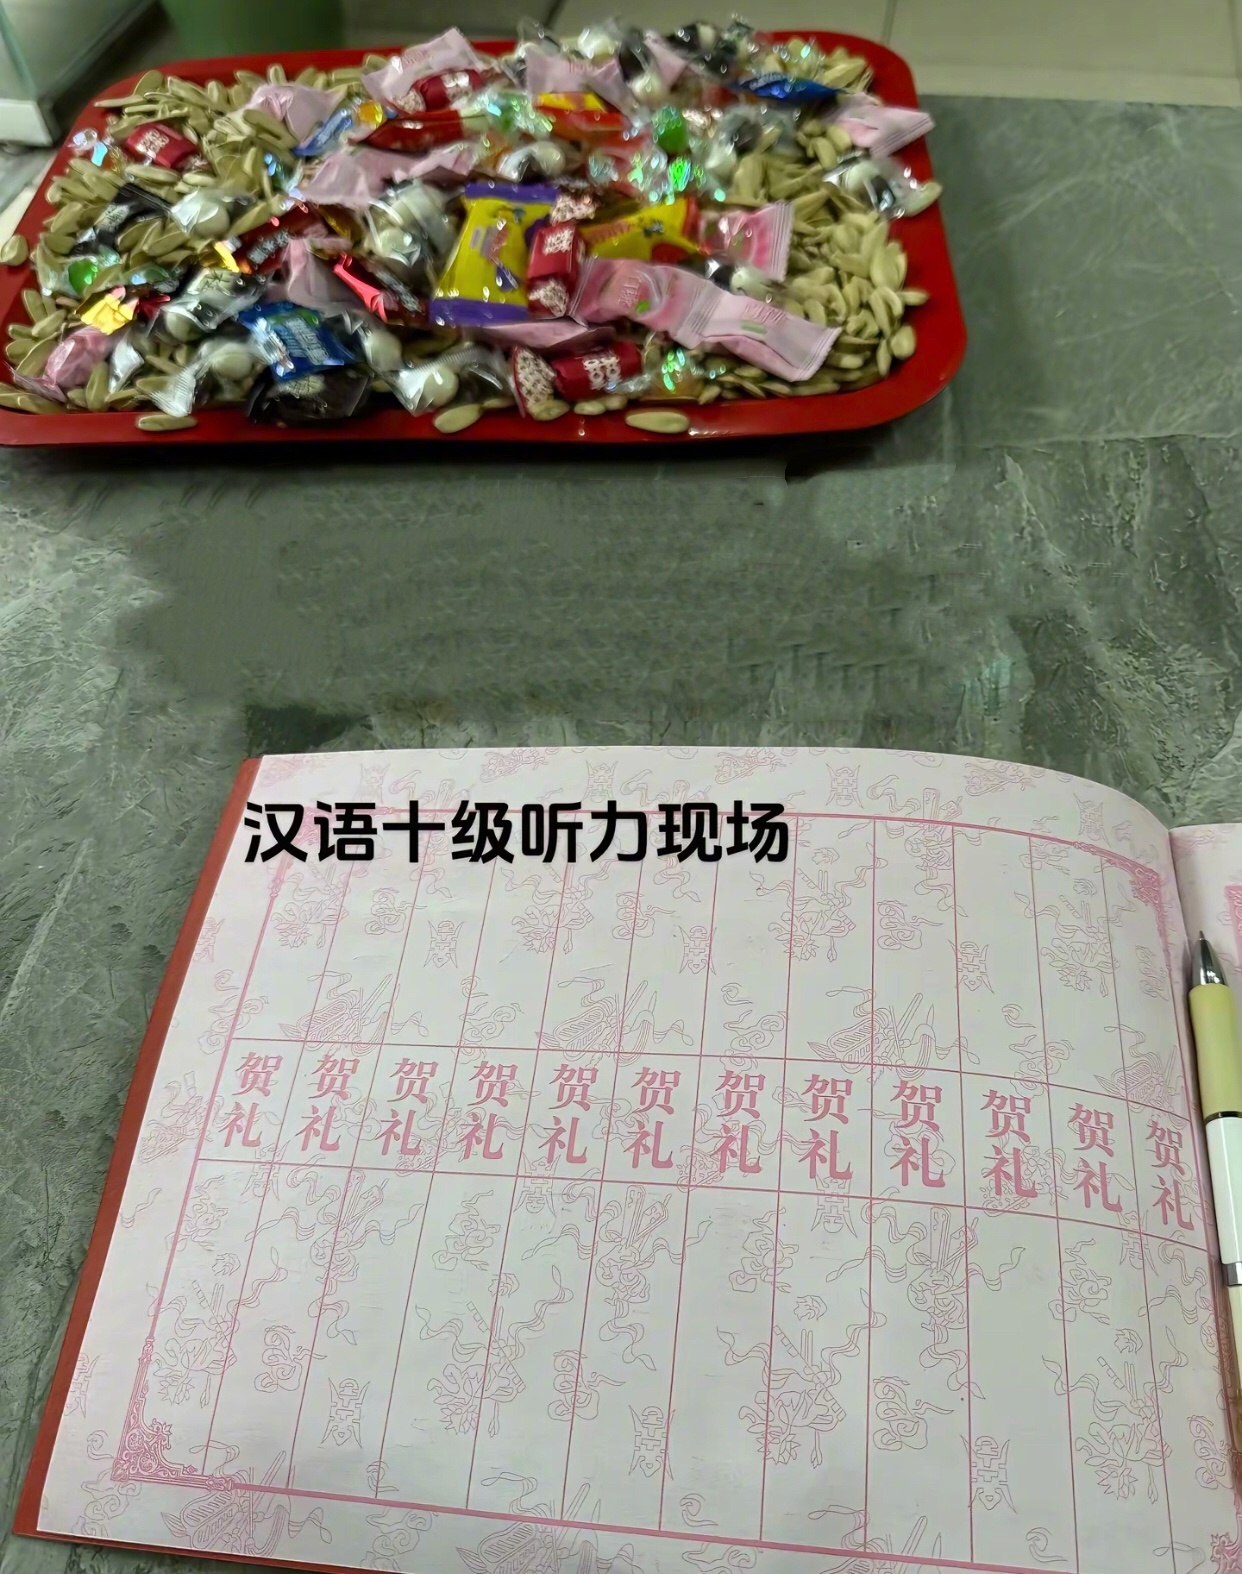 汉语十级听力现场
贺礼 贺礼 贺礼 贺礼 贺礼 贺礼 贺礼 贺礼 贺礼 贺礼 贺礼 贺礼